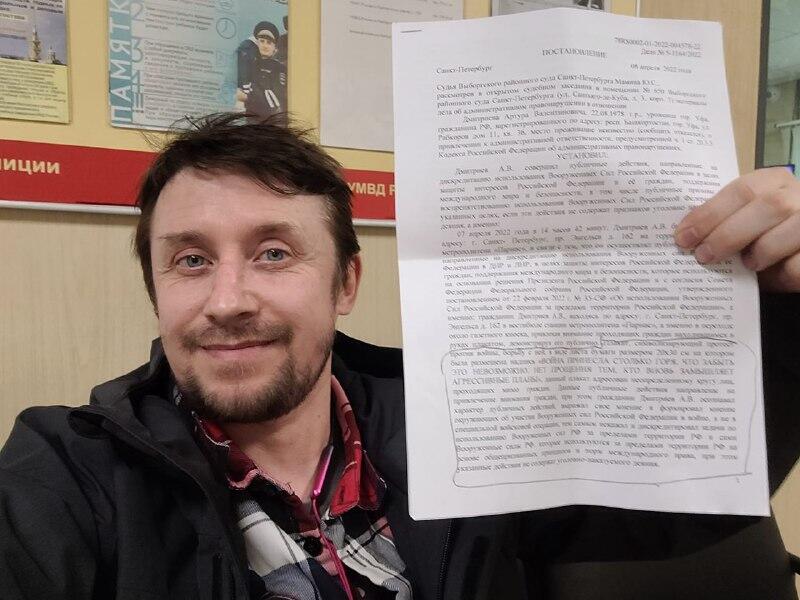 ПАМЯТК
ЛИЦИИ
УМВД Р
78RS0002-01-2022-004578-22
Дело № 5-1164/2022
ПОСТАНОВЛЕНИЕ
Санкт-Петербург
08 апреля 2022 года
Судья Выборгского районного суда Санкт-Петербурга Мамина Ю.С.,
рассмотрев в открытом судебном заседании в помещении № 650 Выборгского
районного суда Санкт-Петербурга (ул. Сантьяго-де-Куба, д. 3, корп. материалы
дела об административном правонарушении в отношении
Дмитриева Артура Валентиновича, 22.08.1978 г.р., уроженца гор. Уфа,
гражданина РФ, зарегистрированного: по адресу: респ. Башкортостан, гор. Уфа, ул.
Рабкоров дом 11, кв. 38, место проживание неизвестно (сообщить отказался), о
привлечении к административной ответственности, предусмотренной ч 1 ст. 20.3.3
Кодекса Российской Федерации об административных правонарушениях,
УСТАНОВИЛ:
Дмитриев А.В. совершил публичные действия, направленные на
дискредитацию использования Вооруженных Сил Российской Федерации в целях
защиты интересов Российской Федерации и её граждан, поддержания
международного мира и безопасности, в том числе публичные призывы
воспрепятствованию использования Вооруженных Сил Российской Федерации
указанных целях, если эти действия не содержат признаков уголовно
деяния, а именно:
07 апреля 2022 года в 14 часов 42 минут, Дмитриев А.В.
адресу: г. Санкт- Петербург, пр. Энгельса д. 162 на
метрополитена «Парнас», в связи с тем, что он осуществлял публичные
направленные на дискредитацию использования Вооруженных
Федерации в ДНР и ЛНР, в целях защиты интересов Российской
граждан, поддержания международного мира и безопасности, которые используются
на основании решения Президента Российской Федерации и с согласия Совета
Федерации Федерального собрания Российской Федерации, утвержденного
постановлением от 22 февраля 2022 г. № 35-СФ «Об использовании Вооруженных
Сил Российской Федерации за пределами территории Российской Федерации», а
именно: гражданин Дмитриев А.В., находясь по адресу: г. Санкт-Петербург, пр.
Энгельса д. 162 в вестибюле станции метрополитена «Парнас», а именно в переходе
около газетного киоска, привлекая внимание проходящих граждан находившимся в
руках плакатом, демонстрировал его публично плакат, символизирующий протест
против войны, борьбу с ней в виде листа бумаги размером 20х30 см на котором
была размещена надпись «ВОЙНА ПРИНЕСЛА СТОЛЬКО ГОРЯ, ЧТО ЗАБЫТЬ
ЭТО НЕВОЗМОЖНО. НЕТ ПРОЩЕНИЯ ТЕМ, КТО ВНОВЬ ЗАМЫШЛЯЕТ
АГРЕССИВНЫЕ ПЛАНЫ», данный плакат адресован неопределенному кругу лиц,
проходящих мимо граждан. Данные публичные действия направлены на
привлечение внимания граждан, при этом гражданин Дмитриев А.В. осознавал
характер публичных действий, выражал свое мнение и формировал мнение
окружающих об участии Вооруженных сил Российской Федерации в войне, а не в
специальной войсковой операции, тем самым искажал и дискредитировал задачи по
использованию Вооруженных сил РФ за пределами территории РФ и сами
Вооруженные силы РФ, которые используются за пределами территории РФ на
основе общепризнанных принципов и норм международного права, при этом
указанные действия не содержат уголовно-наказуемого деяния.